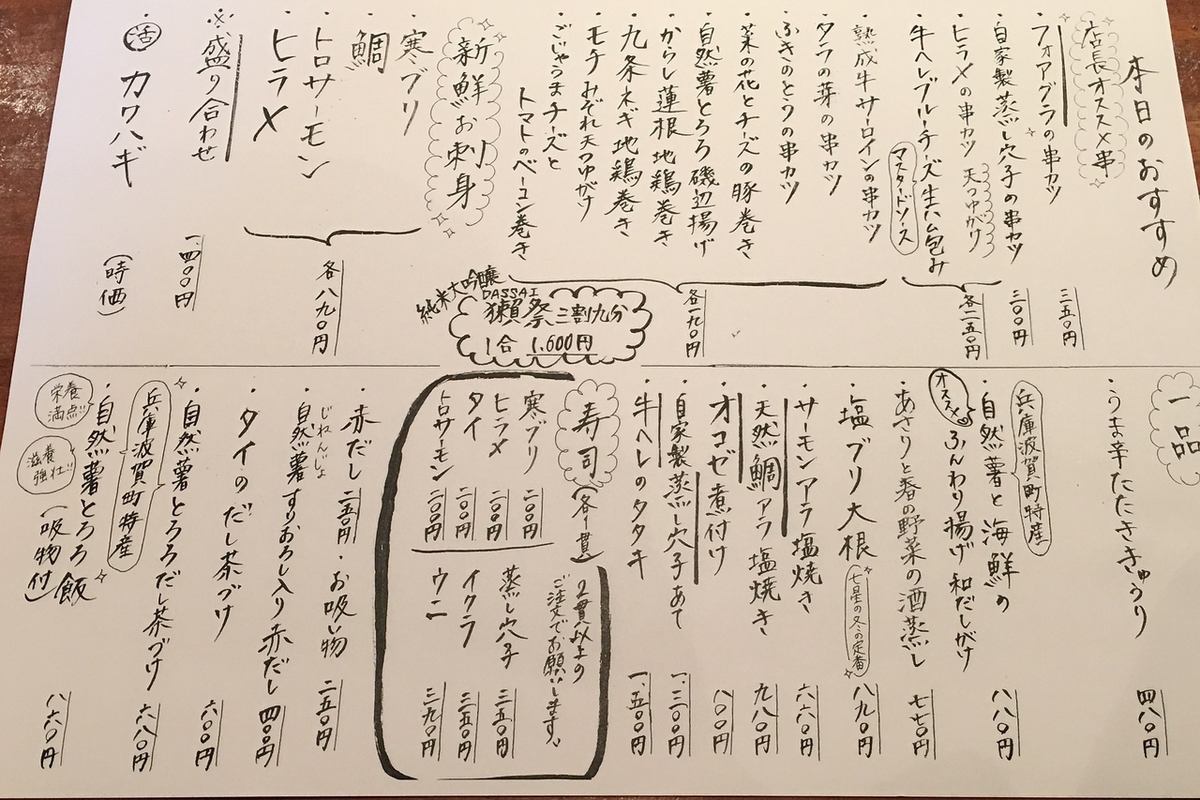 本日のおすすめ
店長オススメ串
・フォアグラの串カツ 三五〇円
・自家製蒸し穴子の串カツ 三〇〇円
・ヒラメの串カツ 天つゆがけ
・牛ヘレブルーチーズ生ハム包み
マスタードソース
各二五〇円
・熟成牛サーロインの串カツ
・タラの芽の串カツ
・ふきのとうの串カツ
・菜の花とチーズの豚巻き
・自然薯とろろ磯辺揚げ
・からし蓮根地鶏巻き
・九条ネギ地鶏巻き
・モチみぞれ天つゆがけ
・ごじゃうまチーズと
トマトのベーコン巻き
各一九〇円
純米大吟醸
DASSAI
獺祭三割九分
1合 1,600円
新鮮お刺身
・寒ブリ
・鯛
・トロサーモン
・ヒラメ
各八九〇円
※盛り合わせ 一、四〇〇円
・活 カワハギ (時価)
一品
・うま辛たたききゅうり 四八〇円
兵庫波賀町特産
・自然薯と海鮮の
オススメ
ふんわり揚げ 和だしがけ 八八〇円
・あさりと春の野菜の酒蒸し 七七〇円
・塩ブリ大根 七星の冬の定番 八九〇円
・サーモンアラ塩焼き 六六〇円
・天然鯛アラ塩焼き 九八〇円
・オコゼ煮付け 八〇〇円
・自家製蒸し穴子あて 一、三〇〇円
・牛ヘレのタタキ 一、五〇〇円
寿司(各一貫)
2貫以上の
ご注文でお願いします。
寒ブリ 二〇〇円
ヒラメ 二〇〇円
タイ 二〇〇円
トロサーモン 二〇〇円
蒸し穴子 三五〇円
イクラ 三五〇円
ウニ 三九〇円
・赤だし 二五〇円
・お吸い物 二五〇円
じねんじょ
・自然薯すりおろし入り赤だし 四〇〇円
・タイのだし茶づけ 六〇〇円
・自然薯とろろだし茶づけ 六八〇円
兵庫波賀町特産
・自然薯とろろ飯
(吸物付) 八六〇円
栄養
満点!!
滋養
強壮!!